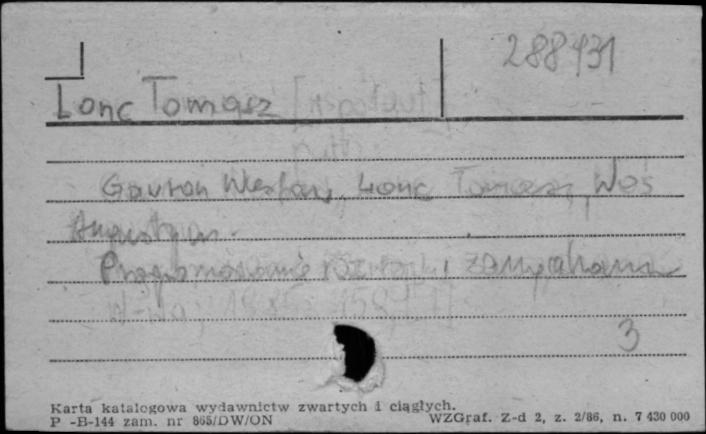 288431
Lonc Tomasz [współaut.]
Gawron Wiesław, Lonc Tomasz, Woś
Augustyn.
Programowanie rozwoju i zarządzania
W-wa, 1985. 158, [1]
3
Karta katalogowa wydawnictw zwartych i ciągłych.
P -B-144 zam. nr 865/DW/ON WZGraf. Z-d 2, z. 2/86, n. 7 430 000